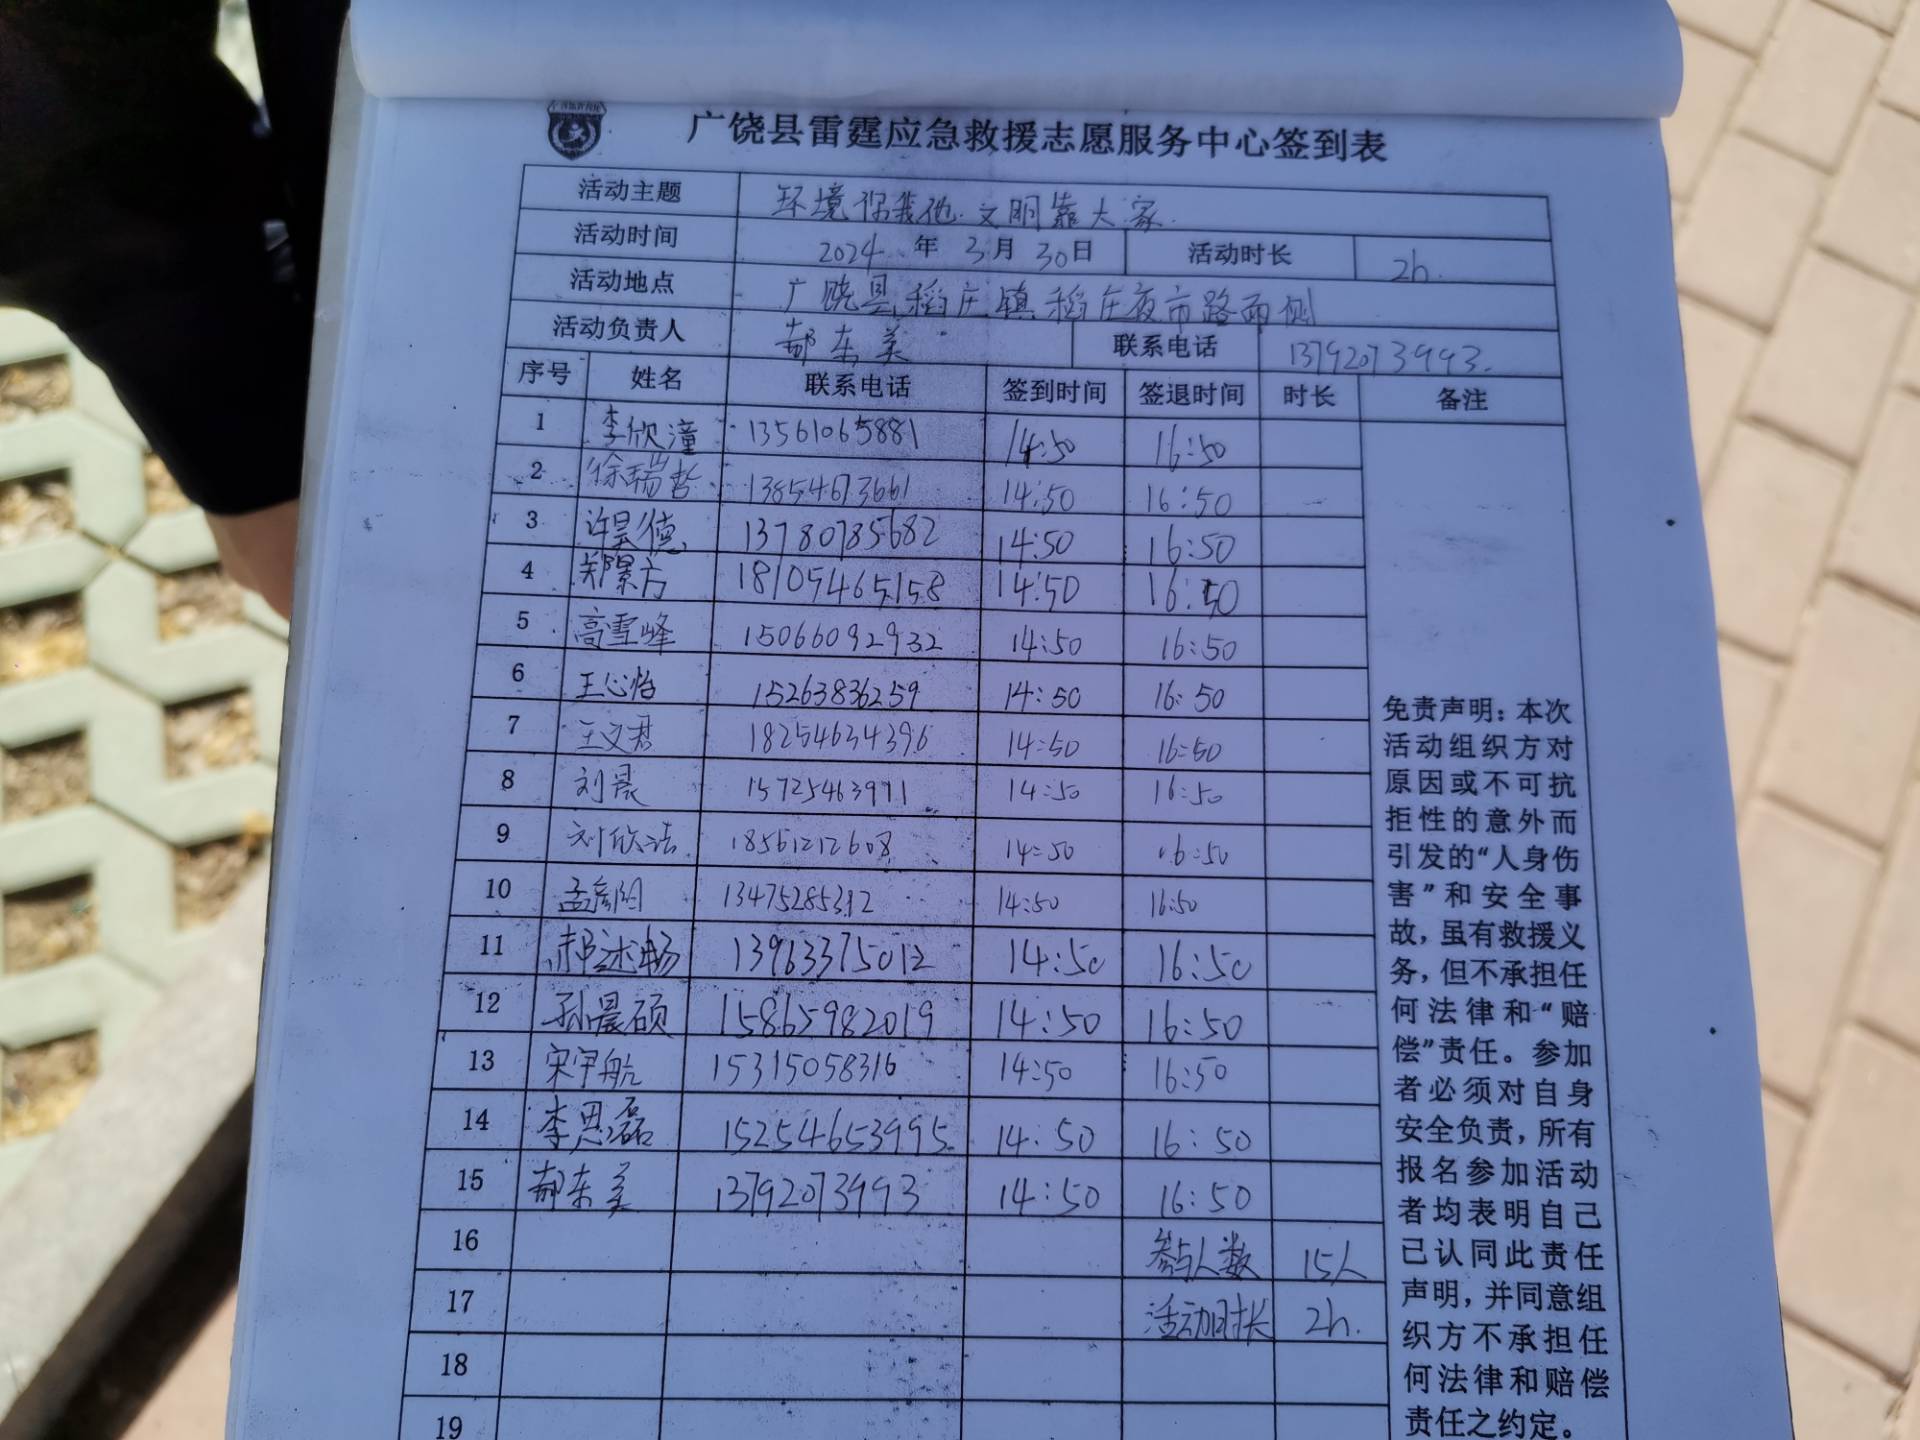 广饶县雷霆应急救援志愿服务中心签到表
活动主题 环境你我他.文明靠大家.
活动时间 2024 年 3月 30日 活动时长 2h.
活动地点 广饶县稻庄镇稻庄夜市路西侧
活动负责人 郝东美 联系电话 13792073993.
序号 姓名 联系电话 签到时间 签退时间 时长 备注
1 李欣潼 13561065881 14:50 16:50
2 徐瑞哲 13854673661 14:50 16:50
3 许昊德 13780785682 14:50 16:50
4 郑景方 18105465158 14:50 16:50
5 高雪峰 15066092932 14:50 16:50
6 王心怡 15263836259 14:50 16:50
7 王文君 18254634396 14:50 16:50
8 刘晨 15725463971 14:50 16:50
9 刘欣洁 18561212608 14:50 16:50
10 13475285312 14:50 16:50
11 郝述畅 13963375012 14:50 16:50
12 孙晨硕 15865982019 14:50 16:50
13 宋宇航 15315058316 14:50 16:50
14 李思磊 15254653995 14:50 16:50
15 郝东美 13792073993 14:50 16:50
16 参与人数 15人
17 活动时长 2h.
18
19
免责声明：本次
活动组织方对
原因或不可抗
拒性的意外而
引发的“人身伤
害”和安全事
故，虽有救援义
务，但不承担任
何法律和“赔
偿”责任。参加
者必须对自身
安全负责，所有
报名参加活动
者均表明自己
已认同此责任
声明，并同意组
织方不承担任
何法律和赔偿
责任之约定。